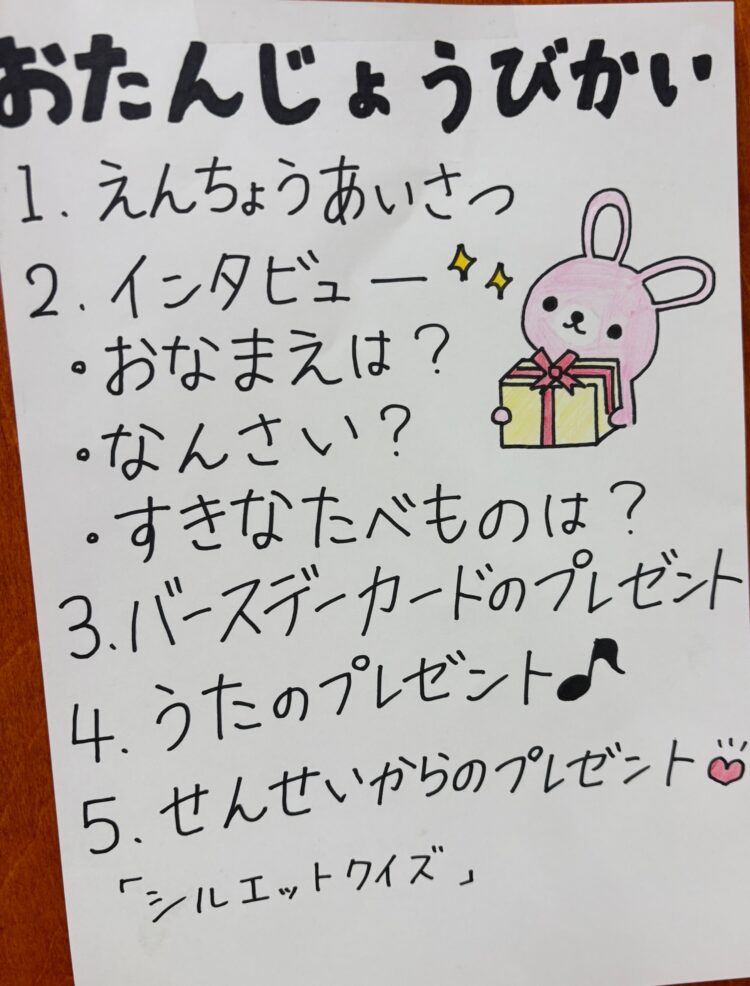 おたんじょうびかい
1. えんちょうあいさつ
2. インタビュー
・おなまえは？
・なんさい？
・すきなたべものは？
3. バースデーカードのプレゼント
4. うたのプレゼント♪
5. せんせいからのプレゼント
「シルエットクイズ」